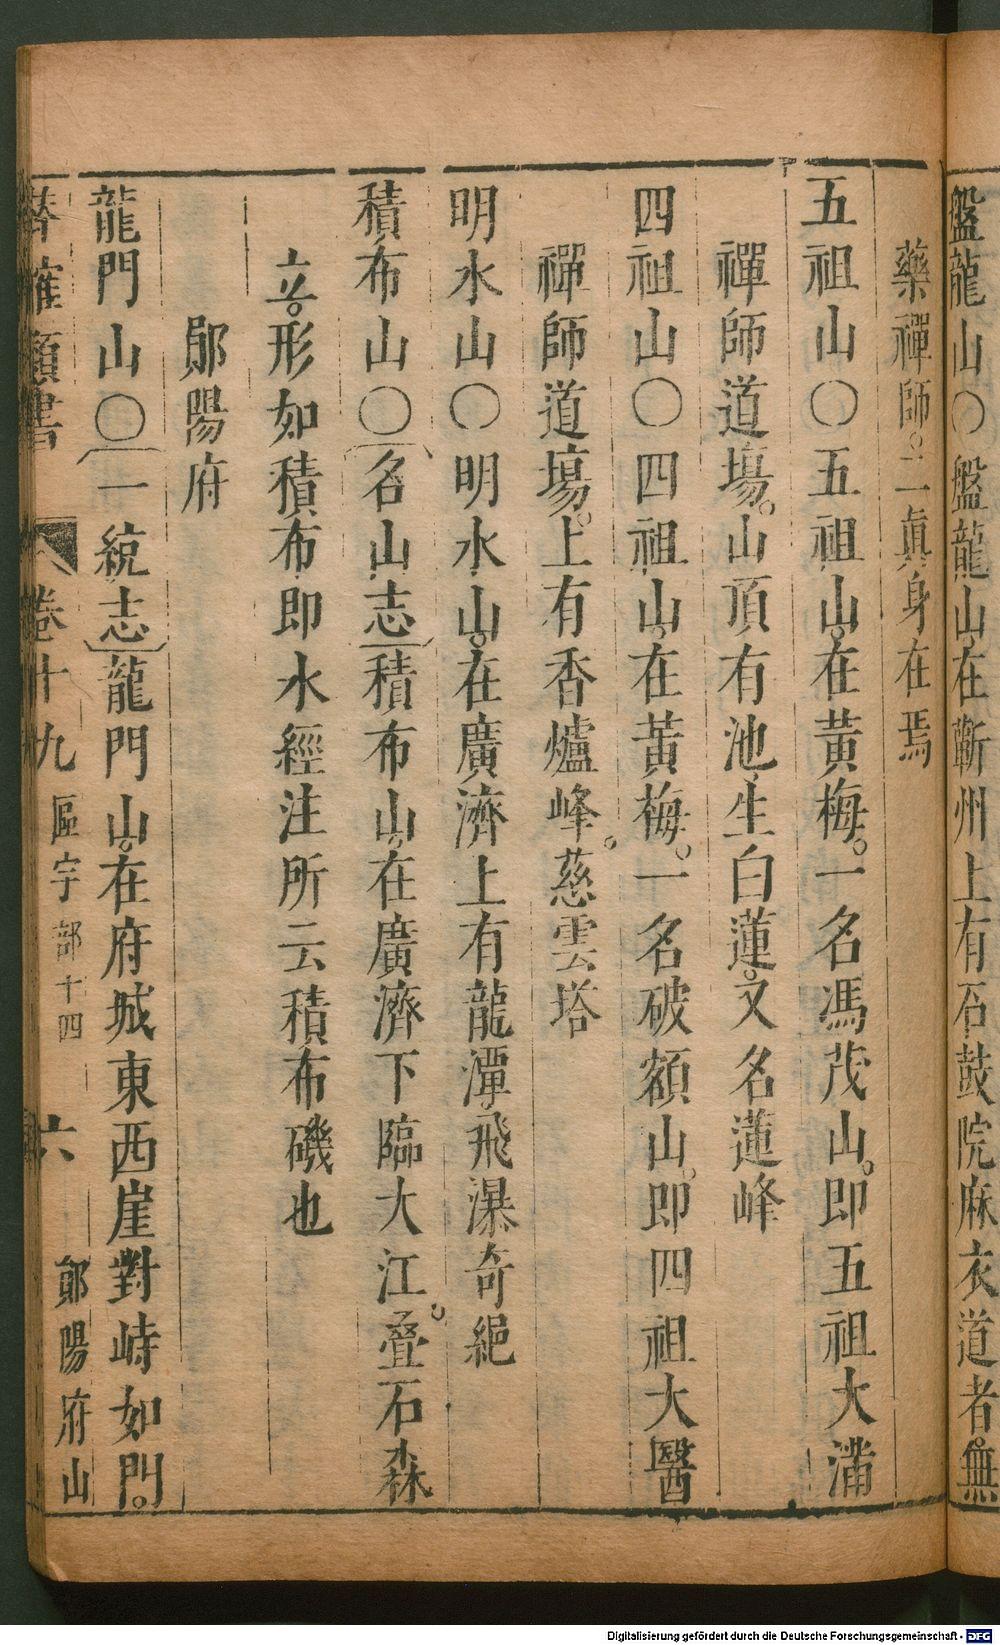 盤龍山○盤龍山在蘄州上有石鼓院麻衣道者無
藥禪師二眞身在焉
五祖山○五祖山在黃梅一名馮茂山即五祖大滿
禪師道塲山頂有池生白蓮又名蓮峰
四祖山○四祖山在黃梅一名破額山即四祖大醫
禪師道塲上有香爐峰慈雲塔
明水山○明水山在廣濟上有龍潭飛瀑奇絕
積布山○名山志積布山在廣濟下臨大江疊石森
立形如積布即水經注所云積布磯也
鄖陽府
龍門山○一統志龍門山在府城東西崖對峙如門
潛確類書 卷十九 區宇部十四 六 鄖陽府山
Digitalisierung gefördert durch die Deutsche Forschungsgemeinschaft - DFG